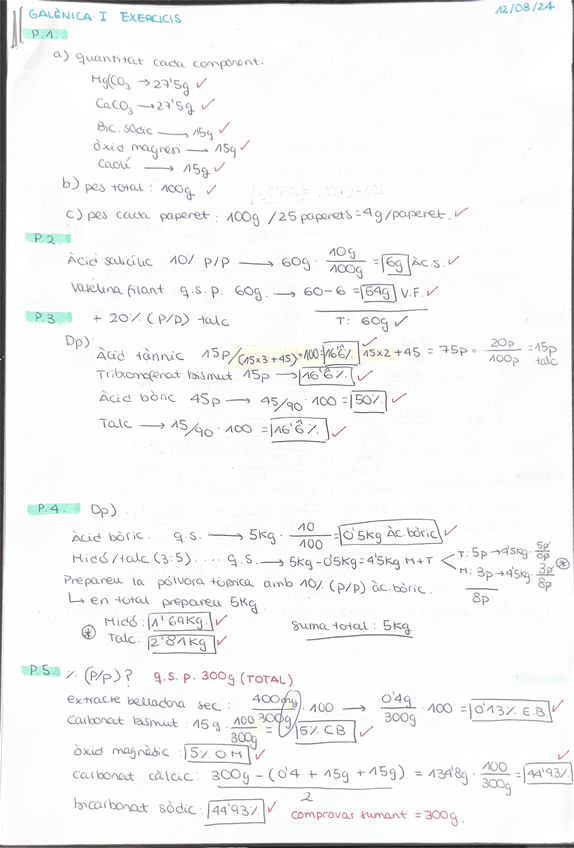 GALÈNICA I EXERCICIS 12/03/24
P.1.
a) quantitat cada component:
MgCO3 → 27'5g ✓
CaCO3 → 27'5g ✓
Bic. sòdic → 15g ✓
òxid magnesi → 15g ✓
Caolí → 15g ✓
b) pes total: 100g ✓
c) pes cada paperet: 100g / 25 paperets = 4g/paperet. ✓
P.2
Àcid salicílic 10% P/P → 60g · 10g/100g = 6g Àc.S. ✓
Vaselina filant q.s.p. 60g. → 60-6 = 54g V.F. ✓
T: 60g ✓
P.3 + 20% (P/P) talc
Dp)
Àcid tànnic 15p/(15x3+45) · 100 = 16'6̂% ✓ 15x2+45 = 75p · 20p/100p = 15p talc
Tribromofenat bismut 15p → 16'6̂% ✓
Àcid bòric 45p → 45/90 · 100 = 50% ✓
Talc → 15/90 · 100 = 16'6̂% ✓
P.4. Dp)
Àcid bòric... q.s. → 5kg · 10/100 = 0'5kg Àc.bòric ✓
Midó/talc (3:5).... q.s. → 5kg-0'5kg = 4'5kg M+T < T: 5p → 4'5kg · 5p/8p
M: 3p → 4'5kg · 3p/8p *
8p
Prepareu la pólvora tòpica amb 10% (P/P) àc.bòric.
↳ en total prepareu 5kg.
* Midó: 1'69kg ✓
Talc: 2'81kg ✓
suma total: 5kg
P.5. % (P/P)? q.s.p. 300g (TOTAL)
extracte belladona sec: 400mg/300g · 100 → 0'4g/300g · 100 = 0'13% E.B ✓
Carbonat bismut: 15g · 100/300g = 5% CB ✓
òxid magnèsic: 5% OM ✓
carbonat càlcic: 300g - (0'4 + 15g + 15g) / 2 = 134'8g · 100/300g = 44'93% ✓
bicarbonat sòdic: 44'93% ✓ comprovar sumant = 300g.